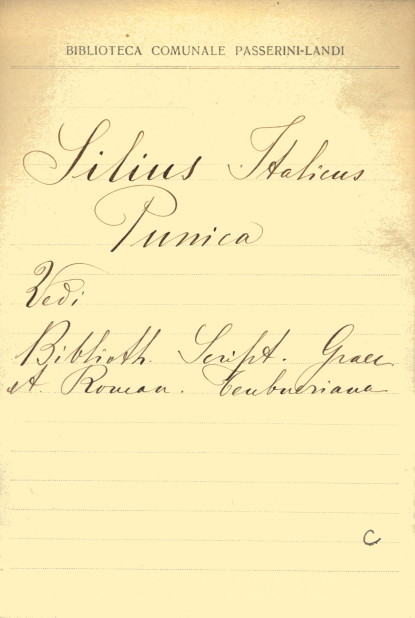 BIBLIOTECA COMUNALE PASSERINI-LANDI
Silius Italicus
Punica
Vedi
Biblioth. Script. Graec
et Roman. Teubneriana
C